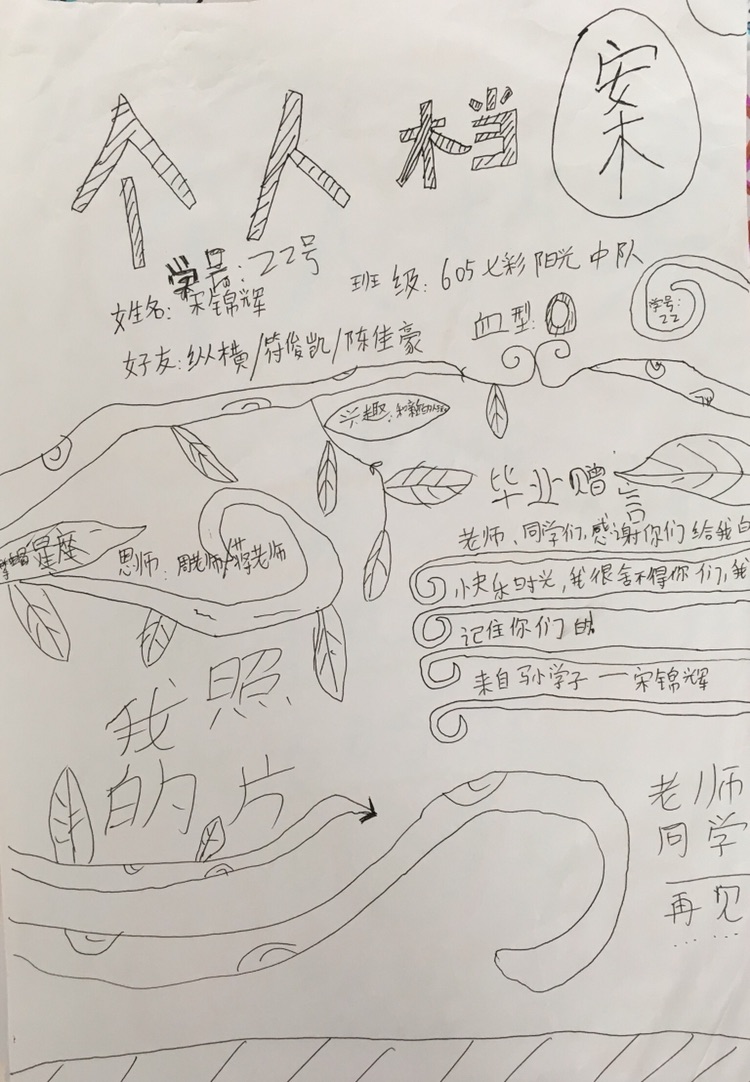 个人档案
学号:22号
班级:605七彩阳光中队
姓名:宋锦辉
血型:O
学号:
22
好友:纵横/符俊凯/陈佳豪
兴趣:
毕业赠言
老师、同学们,感谢你们给我的
快乐时光,我很舍不得你们,我
记住你们的
来自马小学子一宋锦辉
星座
恩师:周老师/蒋老师
我的照片
老师
同学
再见
……